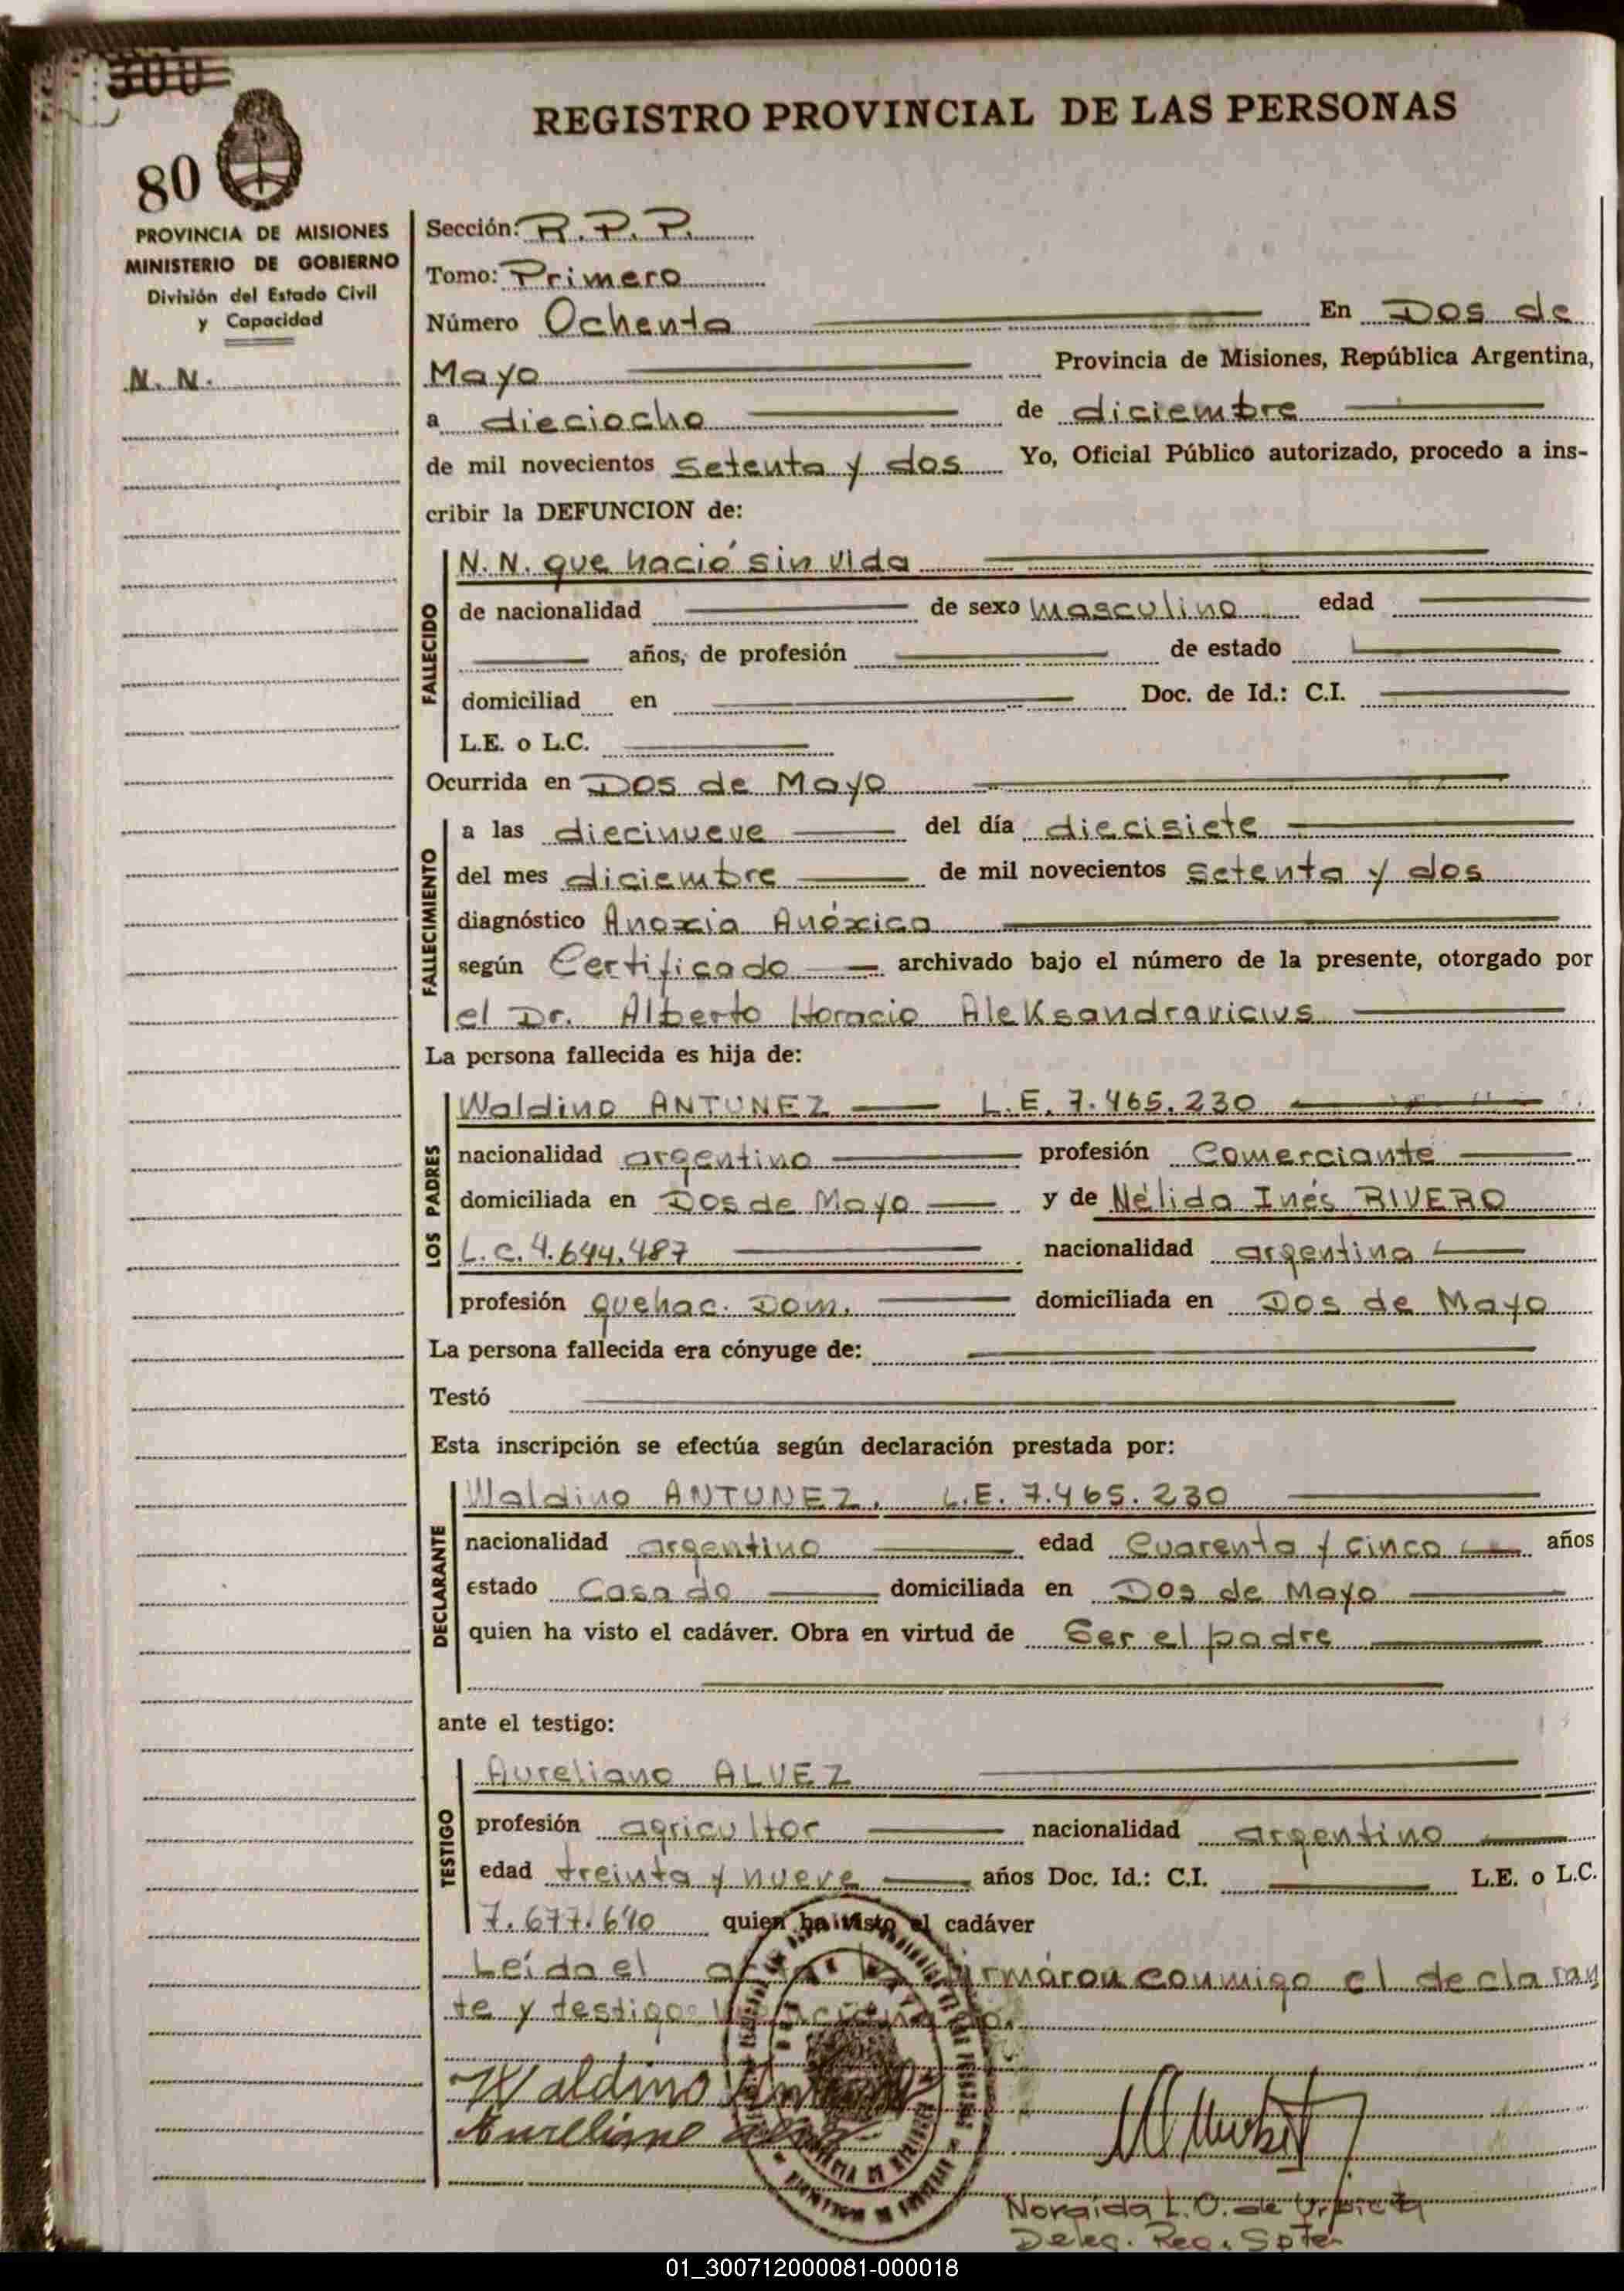 300
REGISTRO PROVINCIAL DE LAS PERSONAS
80
PROVINCIA DE MISIONES
MINISTERIO DE GOBIERNO
División del Estado Civil
y Capacidad
N. N.
Sección: R. P. P.
Tomo: Primero
Número Ochenta En Dos de
Mayo Provincia de Misiones, República Argentina,
a dieciocho de diciembre
de mil novecientos setenta y dos Yo, Oficial Público autorizado, procedo a ins-
cribir la DEFUNCION de:
FALLECIDO
N. N. que nació sin vida
de nacionalidad de sexo masculino edad
años, de profesión de estado
domiciliad en Doc. de Id.: C.I.
L.E. o L.C.
Ocurrida en Dos de Mayo
FALLECIMIENTO
a las diecinueve del día diecisiete
del mes diciembre de mil novecientos setenta y dos
diagnóstico Anoxia Anóxica
según Certificado archivado bajo el número de la presente, otorgado por
el Dr. Alberto Horacio Aleksandravicius
La persona fallecida es hija de:
LOS PADRES
Waldino ANTUNEZ L.E. 7.465.230
nacionalidad argentino profesión Comerciante
domiciliada en Dos de Mayo y de Nélida Inés RIVERO
L.C. 4.644.487 nacionalidad argentina
profesión quehac. Dom. domiciliada en Dos de Mayo
La persona fallecida era cónyuge de:
Testó
Esta inscripción se efectúa según declaración prestada por:
DECLARANTE
Waldino ANTUNEZ. L.E. 7.465.230
nacionalidad argentino edad Cuarenta y cinco años
estado Casado domiciliada en Dos de Mayo
quien ha visto el cadáver. Obra en virtud de Ser el padre
ante el testigo:
TESTIGO
Aureliano ALVEZ
profesión agricultor nacionalidad argentino
edad treinta y nueve años Doc. Id.: C.I. L.E. o L.C.
7.677.640 quien ha visto el cadáver
Leída el acta la firmáron conmigo el declaran
te y testigo
Waldino
Aureliano
Noraida L. O. de
Deleg. Reg. Spte.
01_300712000081-000018